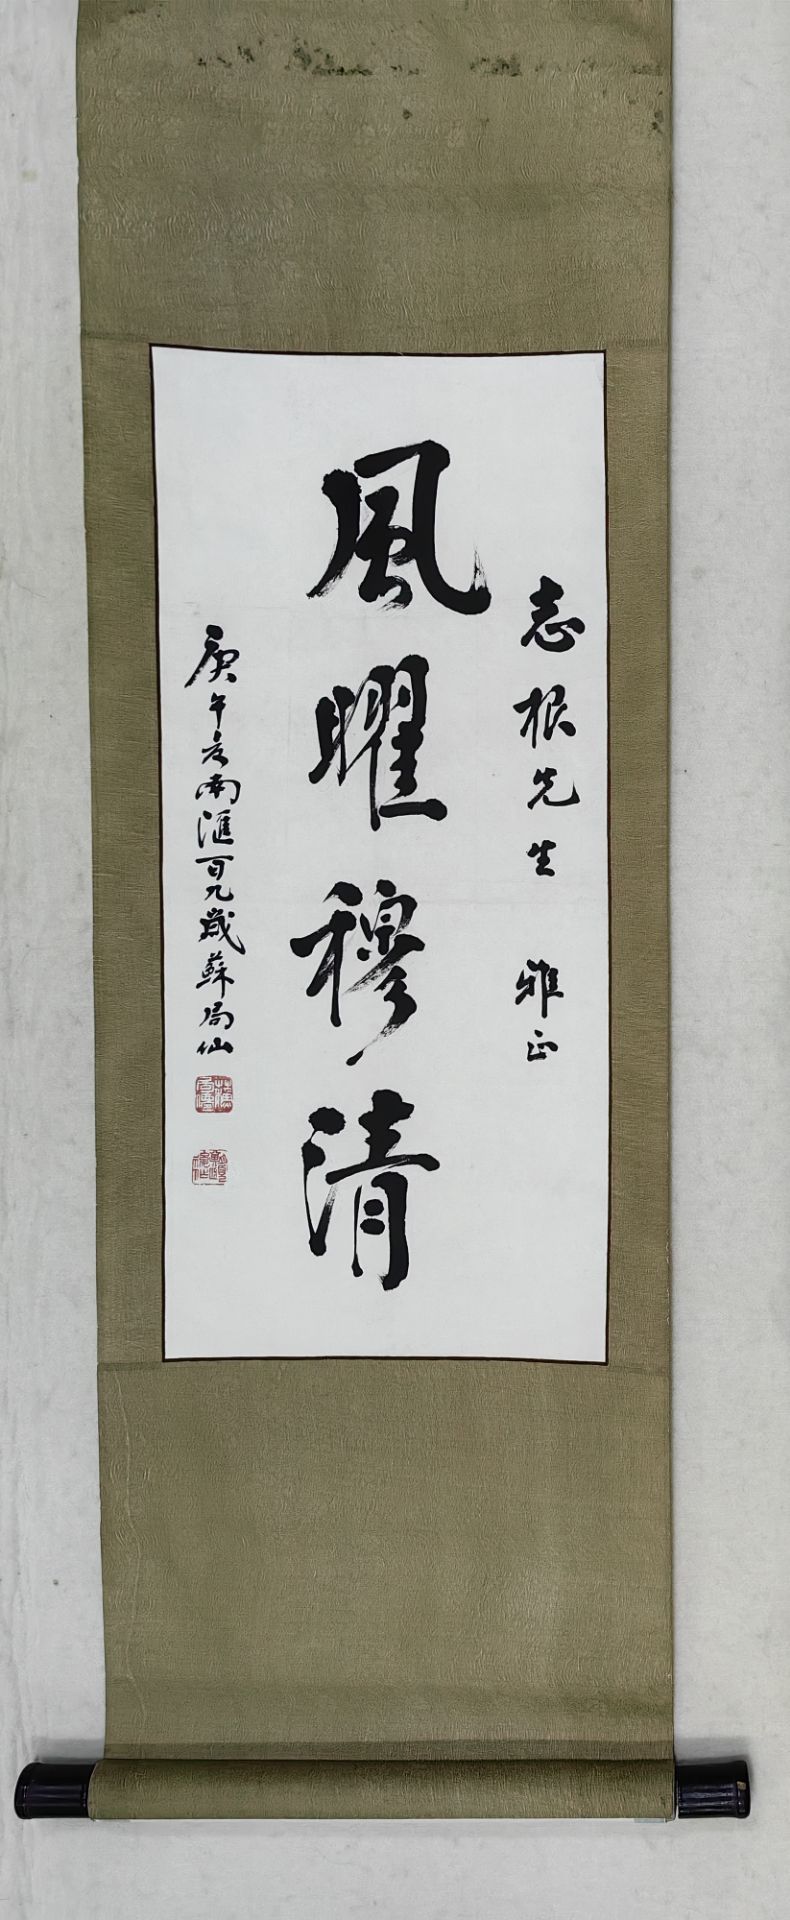 志根先生 雅正
風曜穆清
庚午亥南滙百九歲蘇局仙